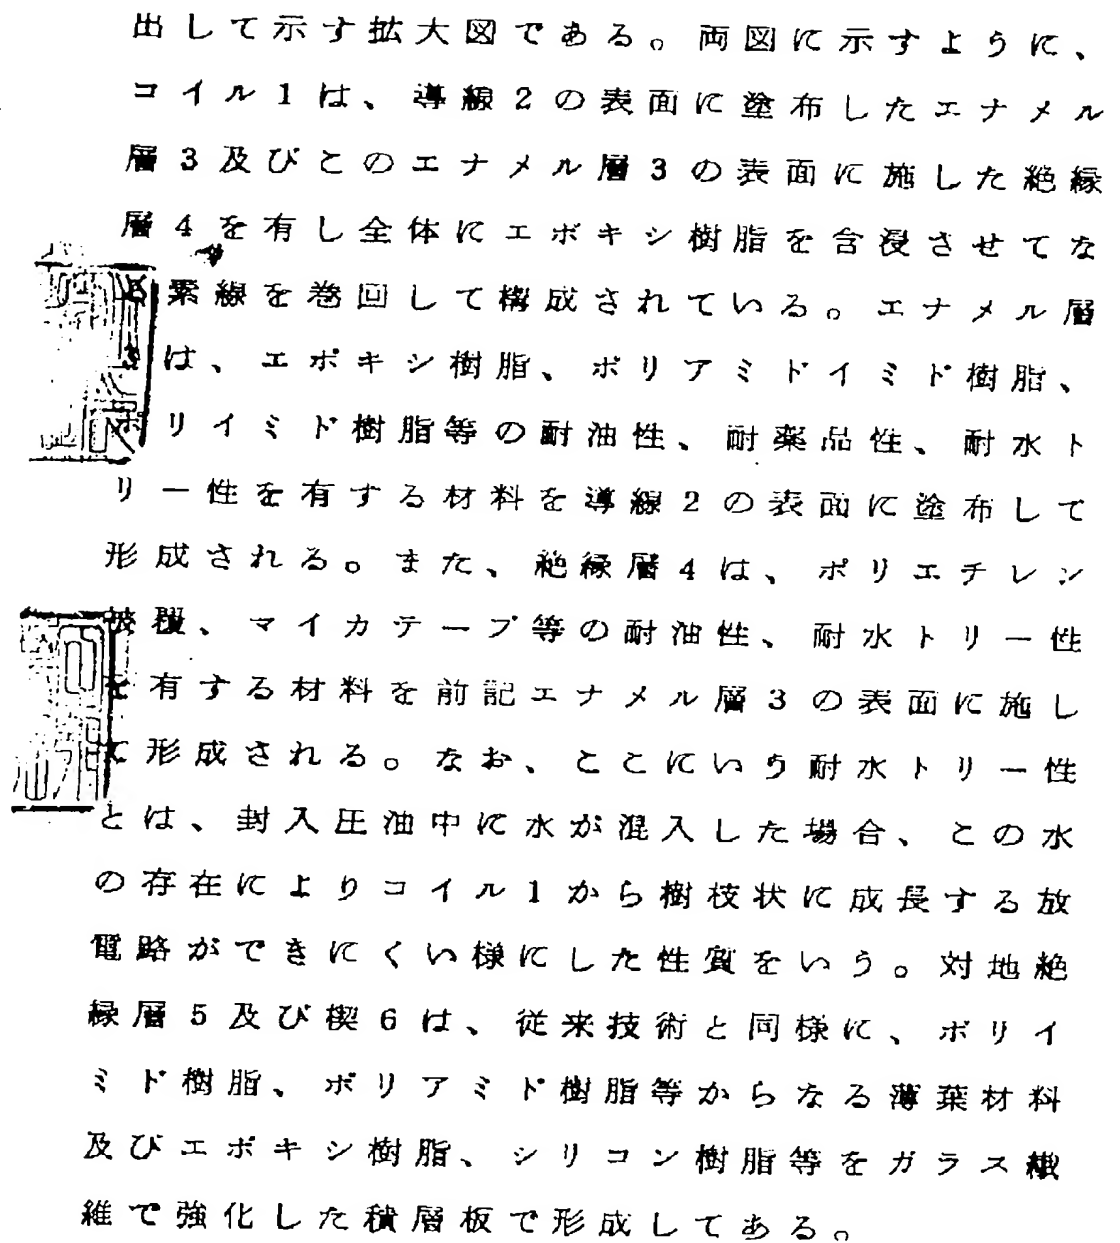 出して示す拡大図である。両図に示すように、
コイル1は、導線2の表面に塗布したエナメル
層3及びこのエナメル層3の表面に施した絶縁
層4を有し全体にエポキシ樹脂を含浸させてな
る素線を巻回して構成されている。エナメル層
3は、エポキシ樹脂、ポリアミドイミド樹脂、
ポリイミド樹脂等の耐油性、耐薬品性、耐水ト
リー性を有する材料を導線2の表面に塗布して
形成される。また、絶縁層4は、ポリエチレン
被覆、マイカテープ等の耐油性、耐水トリー性
を有する材料を前記エナメル層3の表面に施し
て形成される。なお、ここにいう耐水トリー性
とは、封入圧油中に水が混入した場合、この水
の存在によりコイル1から樹枝状に成長する放
電路ができにくい様にした性質をいう。対地絶
縁層5及び楔6は、従来技術と同様に、ポリイ
ミド樹脂、ポリアミド樹脂等からなる薄葉材料
及びエポキシ樹脂、シリコン樹脂等をガラス繊
維で強化した積層板で形成してある。